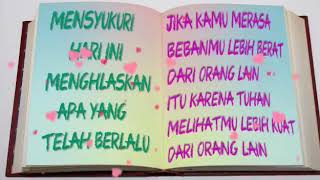 MENSYUKURI
HARI INI
MENGHLASKAN
APA YANG
TELAH BERLALU
JIKA KAMU MERASA
BEBANMU LEBIH BERAT
DARI ORANG LAIN
ITU KARENA TUHAN
MELIHATMU LEBIH KUAT
DARI ORANG LAIN